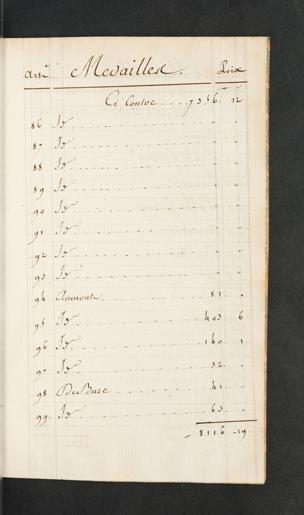 Art. Medailles. Prix
Ci Contre . . . . 7356. 12
86 Id . . . . . . . . . " "
87 Id . . . . . . . . . " "
88 Id . . . . . . . . . " "
89 Id . . . . . . . . . " "
90 Id . . . . . . . . . " "
91 Id . . . . . . . . . " "
92 Id . . . . . . . . . " "
93 Id . . . . . . . . . " "
94 Aumont . . . . . . 81 . "
95 Id . . . . . . . . . 403 6
96 Id . . . . . . . . . 140 . 1
97 Id . . . . . . . . . 32 . "
98 De Bure . . . . . . 41 . "
99 Id . . . . . . . . . 63 . "
8116 . 19